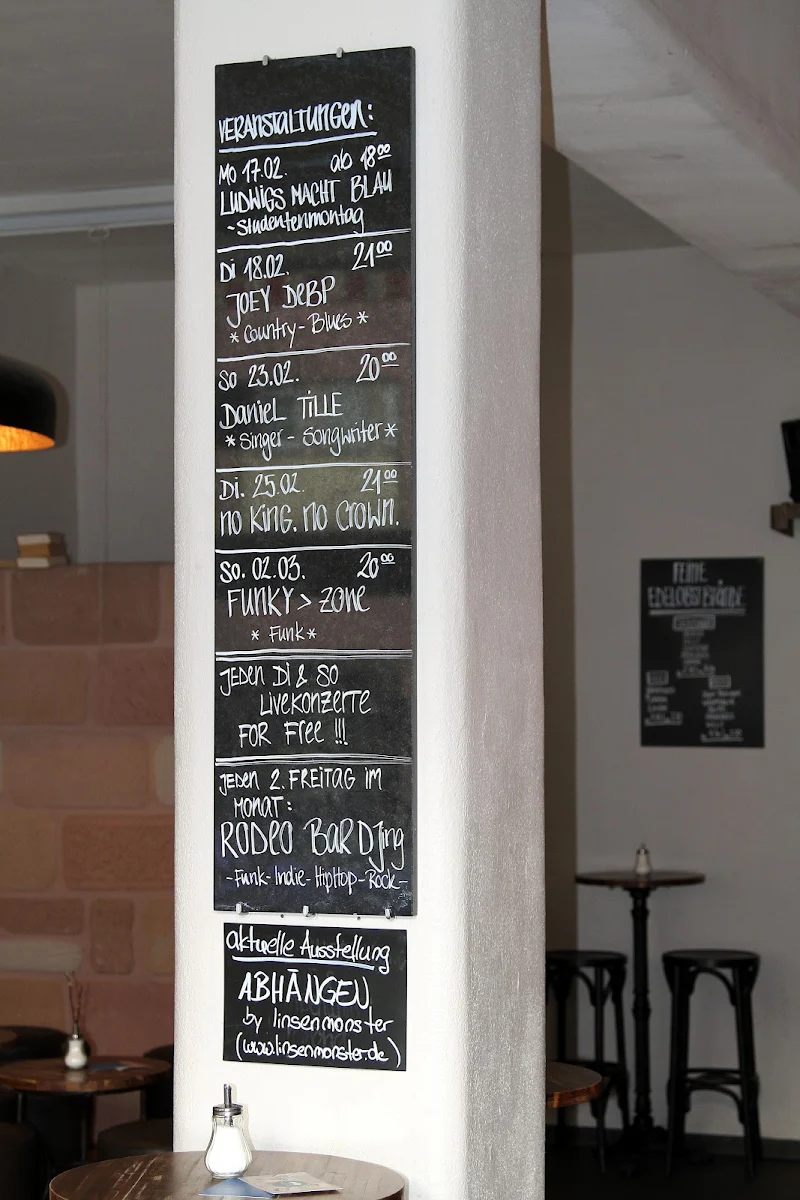 VERANSTALTUNGEN:
MO 17.02. ab 18⁰⁰
LUDWIGS MACHT BLAU
-Studentenmontag
Di 18.02. 21⁰⁰
JOEY DeBP
* Country-Blues *
So 23.02. 20⁰⁰
DanieL TiLLE
* Singer-Songwriter *
Di. 25.02. 21⁰⁰
no King. no Crown.
So. 02.03. 20⁰⁰
FUNKY > Zone
* Funk *
JEDEN Di & SO
LiveKONZeRTE
FOR Free !!!
JEDEN 2. FREITAG IM
MONAT:
RODEO BaR DJing
-Funk-Indie-HipHop-Rock-
aktuelle Ausstellung
ABHÄNGEN
by linsenmonster
(www.linsenmonster.de)
FEINE
EDELOBSTBRÄNDE